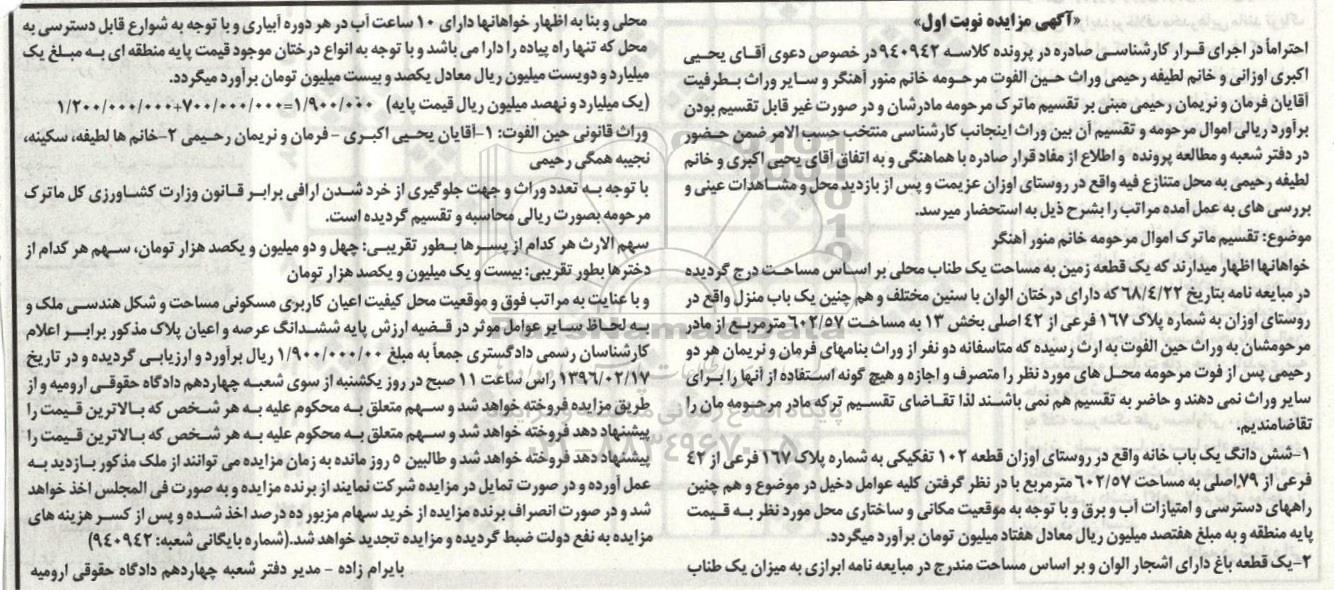 «آگهی مزایده نوبت اول»
احتراماً در اجرای قرار کارشناسی صادره در پرونده کلاسه ۹۴۰۹۴۲ در خصوص دعوی آقای یحیی
اکبری اوزانی و خانم لطیفه رحیمی وراث حین الفوت مرحومه خانم منور آهنگر و سایر وراث بطرفیت
آقایان فرمان و نریمان رحیمی مبنی بر تقسیم ماترک مرحومه مادرشان و در صورت غیر قابل تقسیم بودن
برآورد ریالی اموال مرحومه و تقسیم آن بین وراث اینجانب کارشناسی منتخب حسب الامر ضمن حضور
در دفتر شعبه و مطالعه پرونده و اطلاع از مفاد قرار صادره با هماهنگی و به اتفاق آقای یحیی اکبری و خانم
لطیفه رحیمی به محل متنازع فیه واقع در روستای اوزان عزیمت و پس از بازدید محل و مشاهدات عینی و
بررسی های به عمل آمده مراتب را بشرح ذیل به استحضار میرسد.
موضوع: تقسیم ماترک اموال مرحومه خانم منور آهنگر
خواهانها اظهار میدارند که یک قطعه زمین به مساحت یک طناب محلی بر اساس مساحت درج گردیده
در مبایعه نامه بتاریخ ۶۸/۴/۲۲ که دارای درختان الوان با سنین مختلف و هم چنین یک باب منزل واقع در
روستای اوزان به شماره پلاک ۱۶۷ فرعی از ۴۲ اصلی بخش ۱۳ به مساحت ۶۰۲/۵۷ مترمربع از مادر
مرحومشان به وراث حین الفوت به ارث رسیده که متاسفانه دو نفر از وراث بنامهای فرمان و نریمان هر دو
رحیمی پس از فوت مرحومه محل های مورد نظر را متصرف و اجازه و هیچ گونه استفاده از آنها را برای
سایر وراث نمی دهند و حاضر به تقسیم هم نمی باشند لذا تقاضای تقسیم ترکه مادر مرحومه مان را
تقاضامندیم.
۱-شش دانگ یک باب خانه واقع در روستای اوزان قطعه ۱۰۲ تفکیکی به شماره پلاک ۱۶۷ فرعی از ۴۲
فرعی از ۷۹٫اصلی به مساحت ۶۰۲/۵۷ مترمربع با در نظر گرفتن کلیه عوامل دخیل در موضوع و هم چنین
راههای دسترسی و امتیازات آب و برق و با توجه به موقعیت مکانی و ساختاری محل مورد نظر به قیمت
پایه منطقه و به مبلغ هفتصد میلیون ریال معادل هفتاد میلیون تومان برآورد میگردد.
۲-یک قطعه باغ دارای اشجار الوان و بر اساس مساحت مندرج در مبایعه نامه ابرازی به میزان یک طناب
محلی و بنا به اظهار خواهانها دارای ۱۰ ساعت آب در هر دوره آبیاری و با توجه به شوارع قابل دسترسی به
محل که تنها راه پیاده را دارا می باشد و با توجه به انواع درختان موجود قیمت پایه منطقه ای به مبلغ یک
میلیارد و دویست میلیون ریال معادل یکصد و بیست میلیون تومان برآورد میگردد.
(یک میلیارد و نهصد میلیون ریال قیمت پایه) ۱/۹۰۰/۰۰۰=۷۰۰/۰۰۰/۰۰۰+۱/۲۰۰/۰۰۰/۰۰۰
وراث قانونی حین الفوت: ۱-آقایان یحیی اکبری - فرمان و نریمان رحیمی ۲-خانم ها لطیفه، سکینه،
نجیبه همگی رحیمی
با توجه به تعدد وراث و جهت جلوگیری از خرد شدن ارافی برابر قانون وزارت کشاورزی کل ماترک
مرحومه بصورت ریالی محاسبه و تقسیم گردیده است.
سهم الارث هر کدام از پسرها بطور تقریبی: چهل و دو میلیون و یکصد هزار تومان، سهم هر گدام از
دخترها بطور تقریبی: بیست و یک میلیون و یکصد هزار تومان
و با عنایت به مراتب فوق و موقعیت محل کیفیت اعیان کاربری مسکونی مساحت و شکل هندسی ملک و
به لحاظ سایر عوامل موثر در قضیه ارزش پایه ششدانگ عرصه و اعیان پلاک مذکور برابر اعلام
کارشناسان رسمی دادگستری جمعاً به مبلغ ۱/۹۰۰/۰۰۰/۰۰ ریال برآورد و ارزیابی گردیده و در تاریخ
۱۳۹۶/۰۲/۱۷ راس ساعت ۱۱ صبح در روز یکشنبه از سوی شعبه چهاردهم دادگاه حقوقی ارومیه و از
طریق مزایده فروخته خواهد شد و سهم متعلق به محکوم علیه به هر شخص که بالاترین قیمت را
پیشنهاد دهد فروخته خواهد شد و سهم متعلق به محکوم علیه به هر شخص که بالاترین قیمت را
پیشنهاد دهد فروخته خواهد شد و طالبین ۵ روز مانده به زمان مزایده می توانند از ملک مذکور بازدید به
عمل آورده و در صورت تمایل در مزایده شرکت نمایند از برنده مزایده و به صورت فی المجلس اخذ خواهد
شد و در صورت انصراف برنده مزایده از خرید سهام مزبور ده درصد اخذ شده و پس از کسر هزینه های
مزایده به نفع دولت ضبط گردیده و مزایده تجدید خواهد شد.(شماره بایگانی شعبه: ۹۴۰۹۴۲)
بایرام زاده - مدیر دفتر شعبه چهاردهم دادگاه حقوقی ارومیه
ParsNamadData